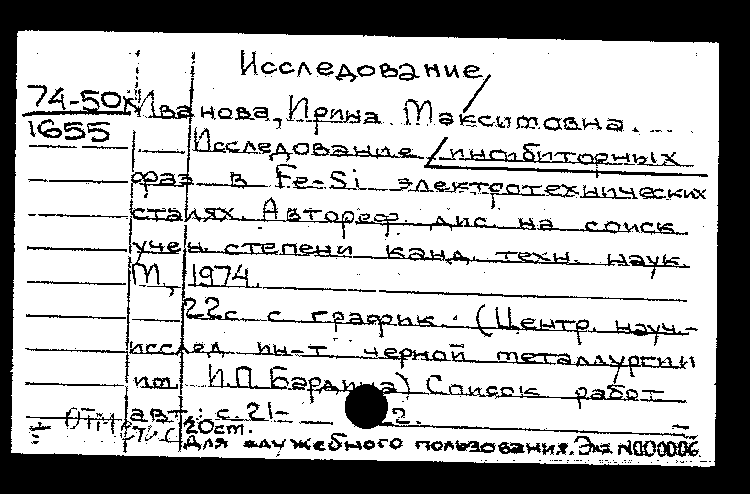 Исследование
74-50к
1655
Иванова, Ирина Максимовна.
Исследование ингибиторных
фаз в Fe-Si электротехнических
сталях. Автореф. дис. на соиск
учен. степени канд. техн. наук.
М, 1974.
22с с график. (Центр. науч.-
исслед ин-т черной металлургии
им. И.П. Бардина) Список работ
авт.: с. 21- 2.
20см.
Для служебного пользования. Экз N000006